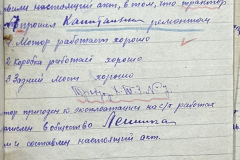 вими настоящий акт, в том, что трактор
прошел Капитальн ремонтом
1. Мотор работает хорошо
2 Коробка работает хорошо
3 Задний мост хорошо
тор пригоден к эксплоатации на с/х работах
в общество Ленина
м и составлен настоящий акт.